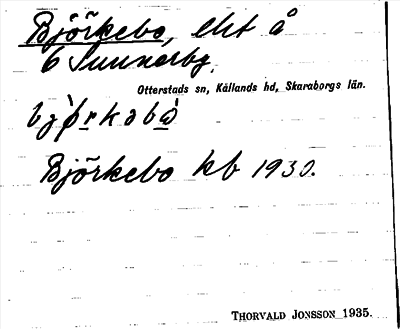 Björkebo, lht å
6 Sunnerby.
Otterstads sn, Kållands hd, Skaraborgs län.
Björkebo kb 1930.
THORVALD JONSSON 1935.